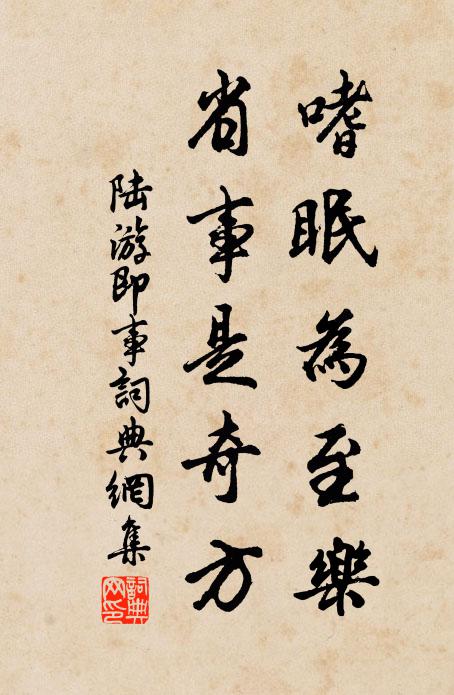 嗜眠為至樂
省事是奇方
陸游即事詞典網集
詞典网印